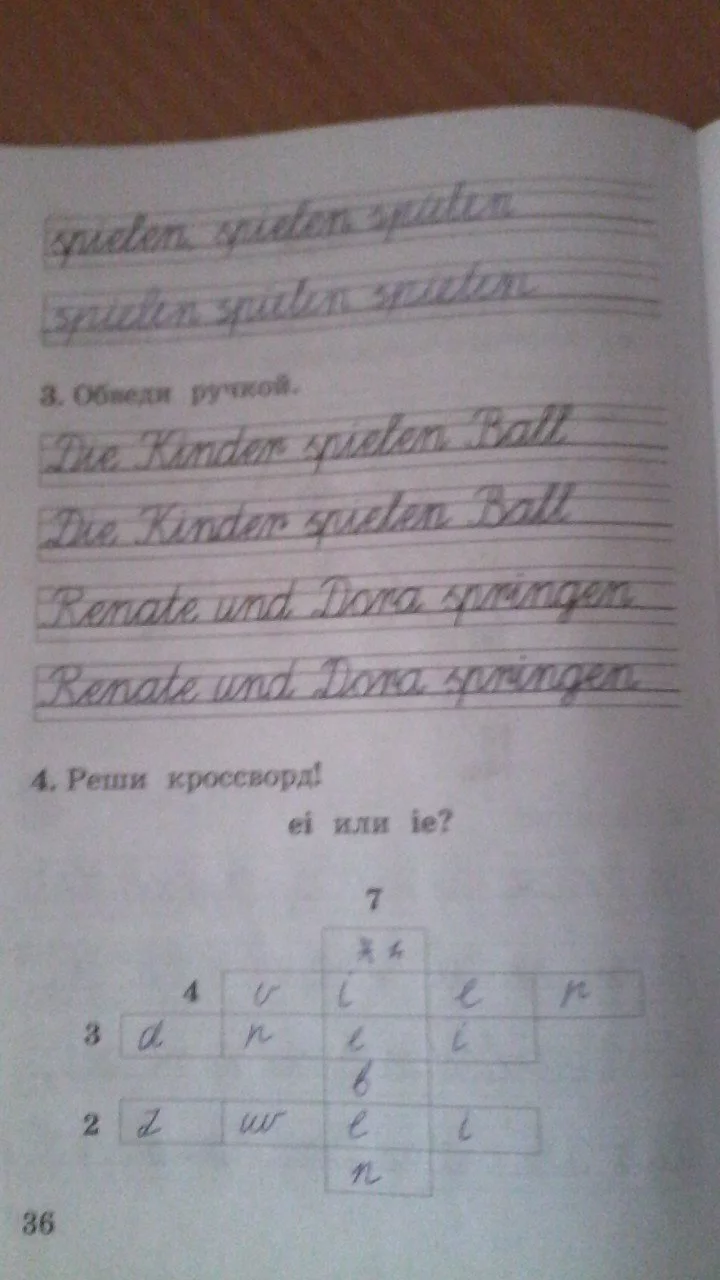 spielen spielen spielen
spielen spielen spielen
3. Обведи ручкой.
Die Kinder spielen Ball
Die Kinder spielen Ball
Renate und Dora springen
Renate und Dora springen
4. Реши кроссворд!
ei или ie?
7
4 v i e r
3 d r e i
b
2 z w e i
n
36